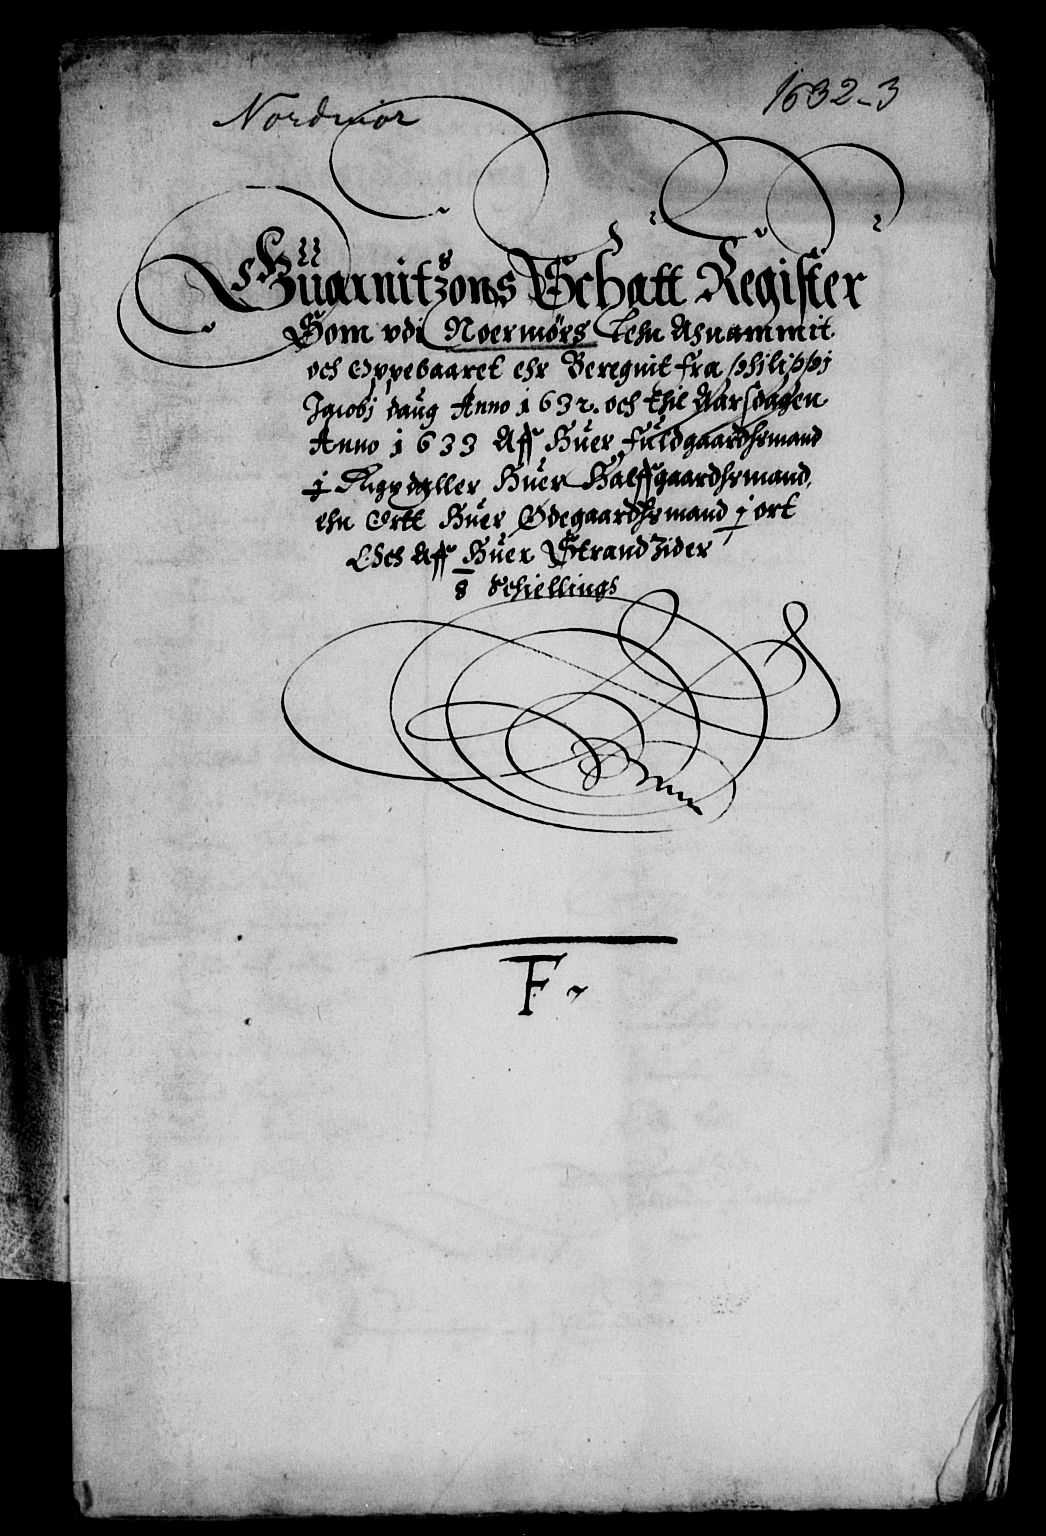 Nordmör
1632-3
Güarnitzons Schatt Register
Som vdi Noermørs Lehn Ahnammit
och Oppebaaret ehr Beregnit fra philippj
Jacobj daug Anno 1632. och thil Aarsdagen
Anno 1633 Aff Huer fuldgaardhsmand
j Rixdaller Huer Halffgaardhsmand,
ehn Ortt Huer Ødegaardhsmand j ort
Och Aff Huer Strandzider
8 Schiellings
F